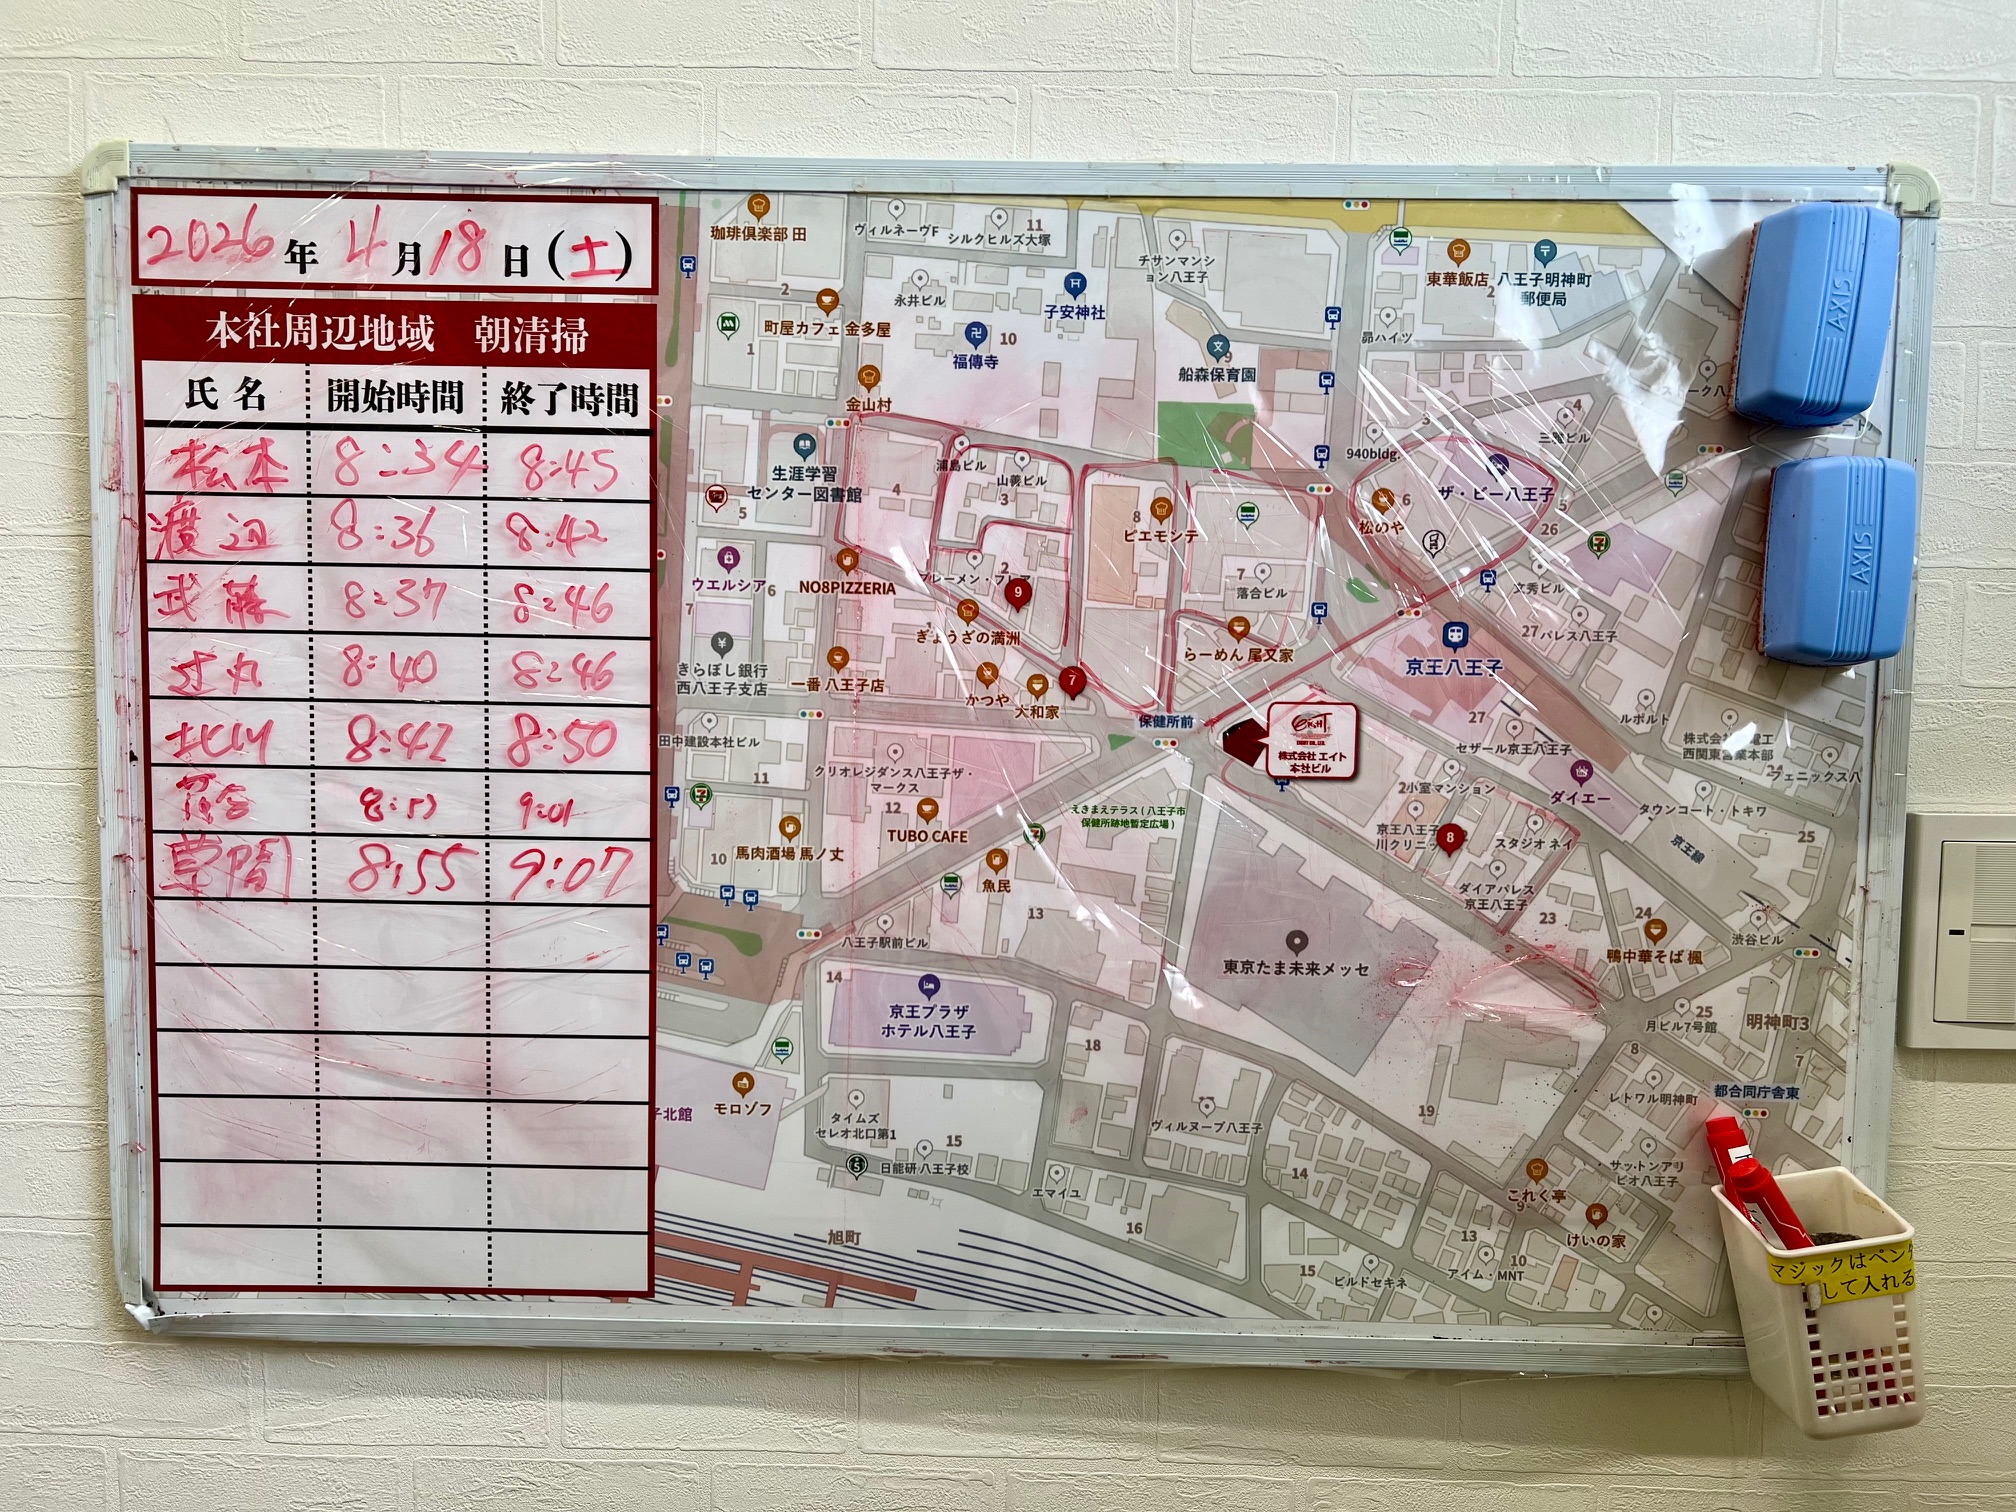 2026年 4月 18日 (土)
本社周辺地域 朝清掃
氏名 開始時間 終了時間
松本 8:34 8:45
渡辺 8:36 8:42
武藤 8:37 8:46
辻丸 8:40 8:46
北川 8:42 8:50
落合 9:01
草間 8:55 9:07
珈琲倶楽部 田
ヴィルネーヴF
シルクヒルズ大塚
11
チサンマンション八王子
東華飯店
八王子明神町郵便局
2
永井ビル
子安神社
町屋カフェ 金多屋
1
福傳寺
10
船森保育園
9
昴ハイツ
金山村
3
4
三鷹ビル
940bldg.
生涯学習
センター図書館
5
浦島ビル
山義ビル
3
4
8
ピエモンテ
ザ・ビー八王子
6
松のや
5
26
ウエルシア
6
7
NO8PIZZERIA
2
9
7
落合ビル
文秀ビル
ぎょうざの満洲
らーめん 尾又家
27
パレス八王子
京王八王子
きらぼし銀行
西八王子支店
一番 八王子店
かつや
大和家
7
保健所前
EIGHT
株式会社 エイト
本社ビル
27
セザール京王八王子
ルポルト
田中建設本社ビル
クリオレジデンス八王子ザ・
マークス
11
12
TUBO CAFE
えきまえテラス(八王子市
保健所跡地暫定広場)
小室マンション
ダイエー
タウンコート・トキワ
京王線
25
8
スタジオネイ
馬肉酒場 馬ノ丈
10
魚民
ダイアパレス
京王八王子
13
23
24
鴨中華そば 楓
渋谷ビル
八王子駅前ビル
東京たま未来メッセ
14
京王プラザ
ホテル八王子
25
月ビル7号館
明神町3
18
8
7
レトワル明神町
都合同庁舎東
子北館
モロゾフ
タイムズ
セレオ北口第1
ヴィルヌーブ八王子
19
15
日能研 八王子校
エマイユ
14
これく亭
9
サットンアリ
ビオ八王子
けいの家
旭町
16
15
ビルドセキネ
13
10
アイム・MNT
AXIS
AXIS
マジックはペン
して入れる